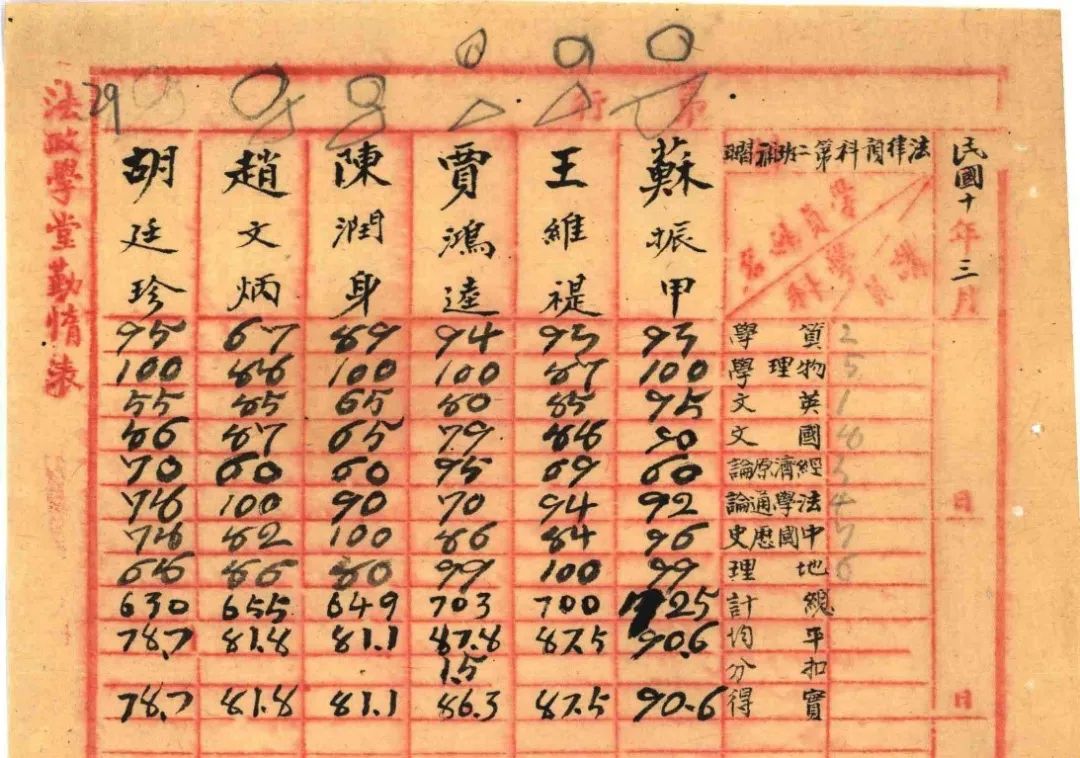 民國十年三月 日
日
法律預科第二班補習
學員姓名
學科
2 5 1 8 3 4 7 6
算學
物理學
英文
國文
經濟原論
法學通論
中國歷史
地理
總計
平均
扣分
實得
蘇振甲 93 100 95 90 60 92 96 99 725 90.6 90.6
王維禔 93 87 85 88 69 94 84 100 700 87.5 87.5
賈鴻逵 94 100 80 79 95 70 86 99 703 87.8 1.5 86.3
陳潤身 89 100 65 65 60 90 100 80 649 81.1 81.1
趙文炳 67 88 85 87 60 100 82 86 655 81.8 81.8
胡廷珍 95 100 55 86 70 78 78 68 630 78.7 78.7
29
法政學堂勤惰表